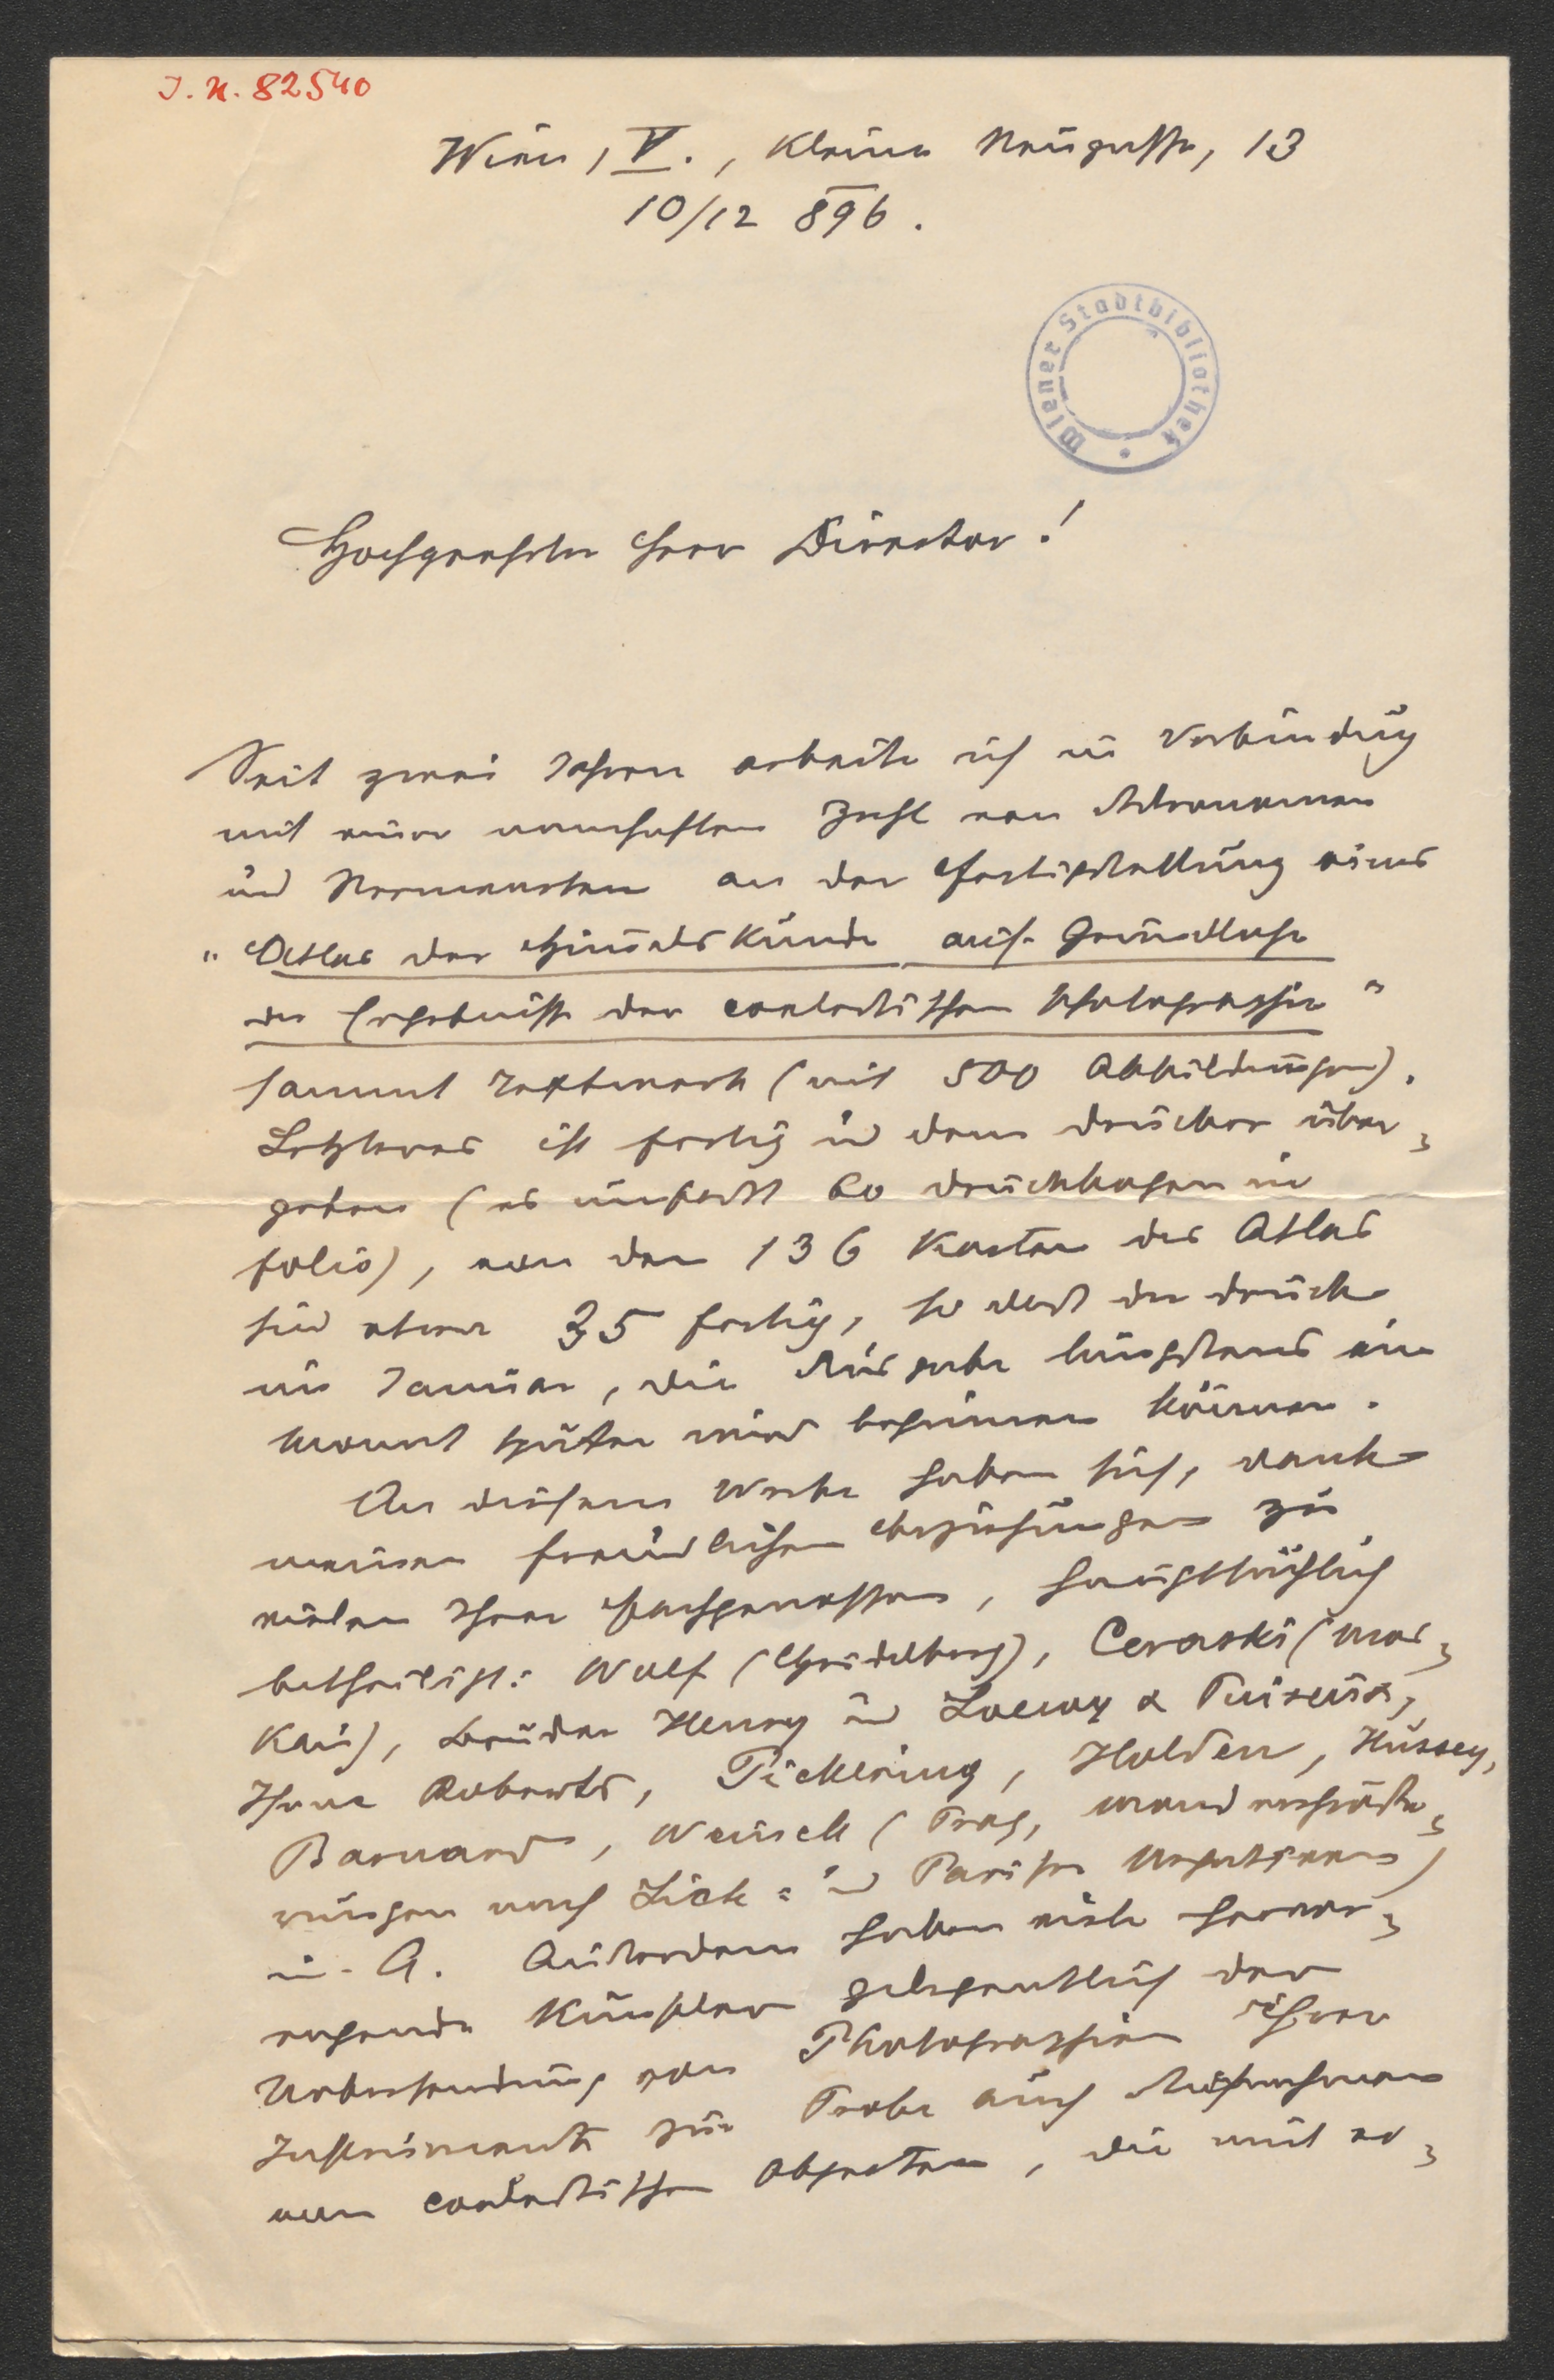 J. N. 82540
Wien, V., Kleine Neugasse, 13
10/12 896.
Wiener Stadtbibliothek
Hochgeehrter Herr Director!
Seit zwei Jahren arbeite ich in Verbindung
mit einer namhaften Zahl von Astronomen
und an der Fertigstellung eines
"Atlas der Himmelskunde auf Grundlage
der Ergebnisse der coelestischen Photographie"
sammt Textwerk (mit 500 Abbildungen).
Letzteres ist fertig und dem Drucker über-
geben (es umfasst 60 Druckbogen in
folio), von den 136 Karten des Atlas
sind etwa 35 fertig, so dass der Druck
im Januar, die Ausgabe längstens ein
Monat später wird beginnen können.
An diesem Werke haben sich, dank
meinen freundlichen Beziehungen zu
vielen Ihrer Fachgenossen, hauptsächlich
betheiligt: Wolf (Heidelberg), Ceraski (Mos-
kau), Brüder Henry und Loewy & Puiseux,
Isaac Roberts, Pickering, Holden, Hussey,
Barnard, Weinek (Prag, Mondvergröße-
rungen nach Lick- und Pariser Negativen)
u. A. Außerdem haben viele hervor-
ragende Künstler gelegentlich der
Uebersendung von Photographien ihrer
Instrumente zur Probe auch Aufnahmen
von coelestischen Objecten, die mit er-